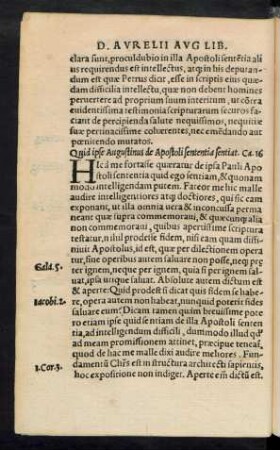 D. AVRELII AVG LIB.
clara sunt, proculdubio in illa Apostoli sentẽtia ali
us requirendus est intellectus, atqȝ in his deputan-
dum est quæ Petrus dicit, esse in scriptis eius quæ-
dam difficilia intellectu, quæ non debent homines
peruertere ad proprium suum interitum, ut cõtra
euidentissima testimonia scripturarum securos fa-
ciant de percipienda salute nequissimos, nequitiæ
suæ pertinacissime cohærentes, nec emẽdando aut
pœnitendo mutatos.
Quid ipse Augustinus de Apostoli sententia sentiat. Ca. 16
HIc a me fortasse quæratur de ipsa Pauli Apo
stoli sententia quid ego sentiam, & quonam
modo intelligendam putem. Fateor me hic malle
audire intelligentiores atqȝ doctiores, qui sic eam
exponant, ut illa omnia uera & inconcussa perma
neant quæ supra commemoraui, & quæcunqȝ alia
non commemoraui, quibus apertissime scriptura
testatur, nihil prodesse fidem, nisi eam quam diffi-
niuit Apostolus, id est, quæ per dilectionem opera
Gala. 5.
tur, siue operibus autem saluare non posse, neqȝ præ
ter ignem, neque per ignem, quia si per ignem salu
uat, ipsa utique saluat. Absolute autem dictum est
& aperte: Quid prodest si dicat quis fidem se habe-
Iacobi. 2.
re, opera autem non habeat, nunquid poterit fides
saluare eum? Dicam tamen quam breuissime pote
ro etiam ipse quid sentiam de illa Apostoli senten
tia, ad intelligendum difficili, dummodo illud qđ
ad meam promissionem attinet, præcipue teneat,
quod de hac me malle dixi audire meliores. Fun-
damentũ Chr̃s est in structura architecti sapientis,
1. Cor. 3.
hoc expositione non indiget. Aperte em̃ dictũ est.